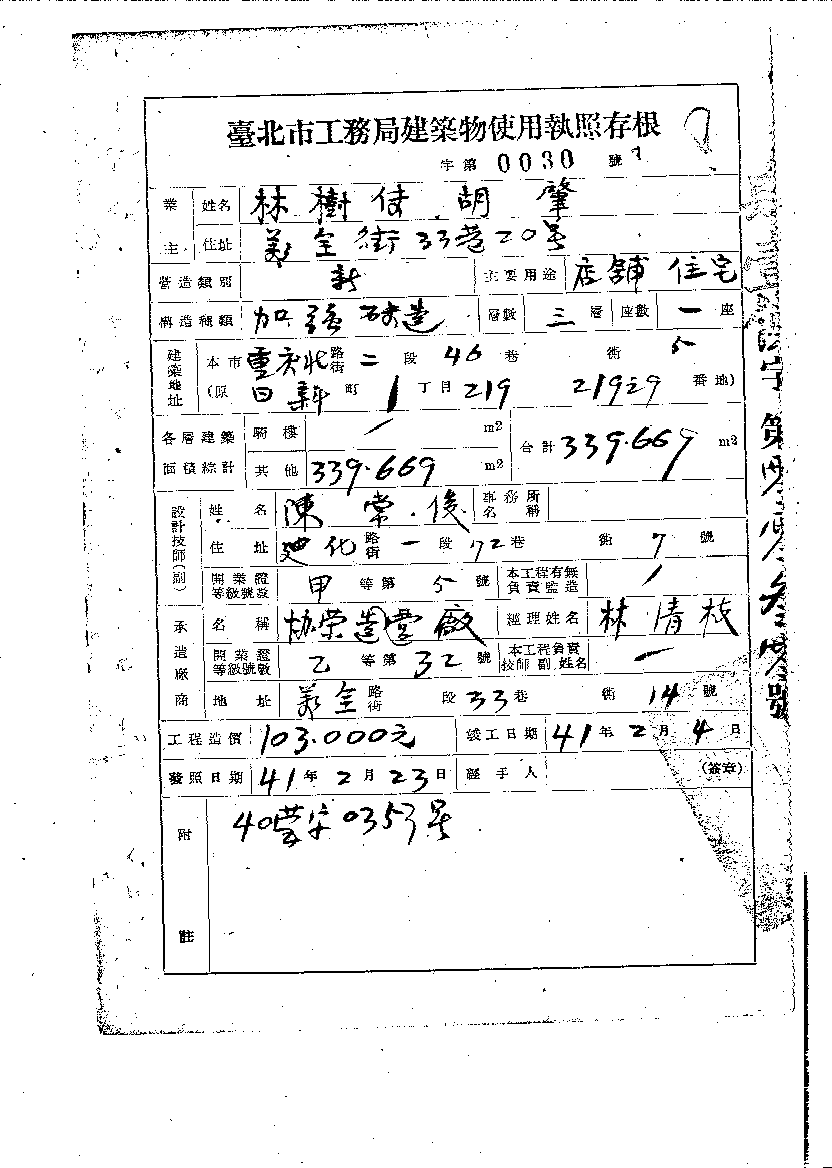 臺北市工務局建築物使用執照存根
字第 0030 號
業主 姓名 林樹 胡肇
住址 全街33巷20号
營造類別 新 主要用途 店舖 住宅
構造種類 加強磚造 層數 三層 座數 一座
建築地址 本市重慶北路街二段46巷 街 5
(原日新町1丁目219 219之9 番地)
各層建築面積綜計 騎樓 / m2 合計 339.669 m2
其他 339.669 m2
設計技師(副) 姓名 陳 俊 事務所名稱
住址 迪化路街一段72巷 街 7 號
開業證等級號數 甲等第5號 本工程有無負責監造 /
承造廠商 名稱 協榮營造廠 經理姓名 林清枝
開業證等級號數 乙等第32號 本工程負責技師副姓名 一
地址 全路街 段33巷 街 14 號
工程造價 103.000元 竣工日期 41年2月4日
發照日期 41年2月23日 經手人 (簽章)
附註 40營字0353号